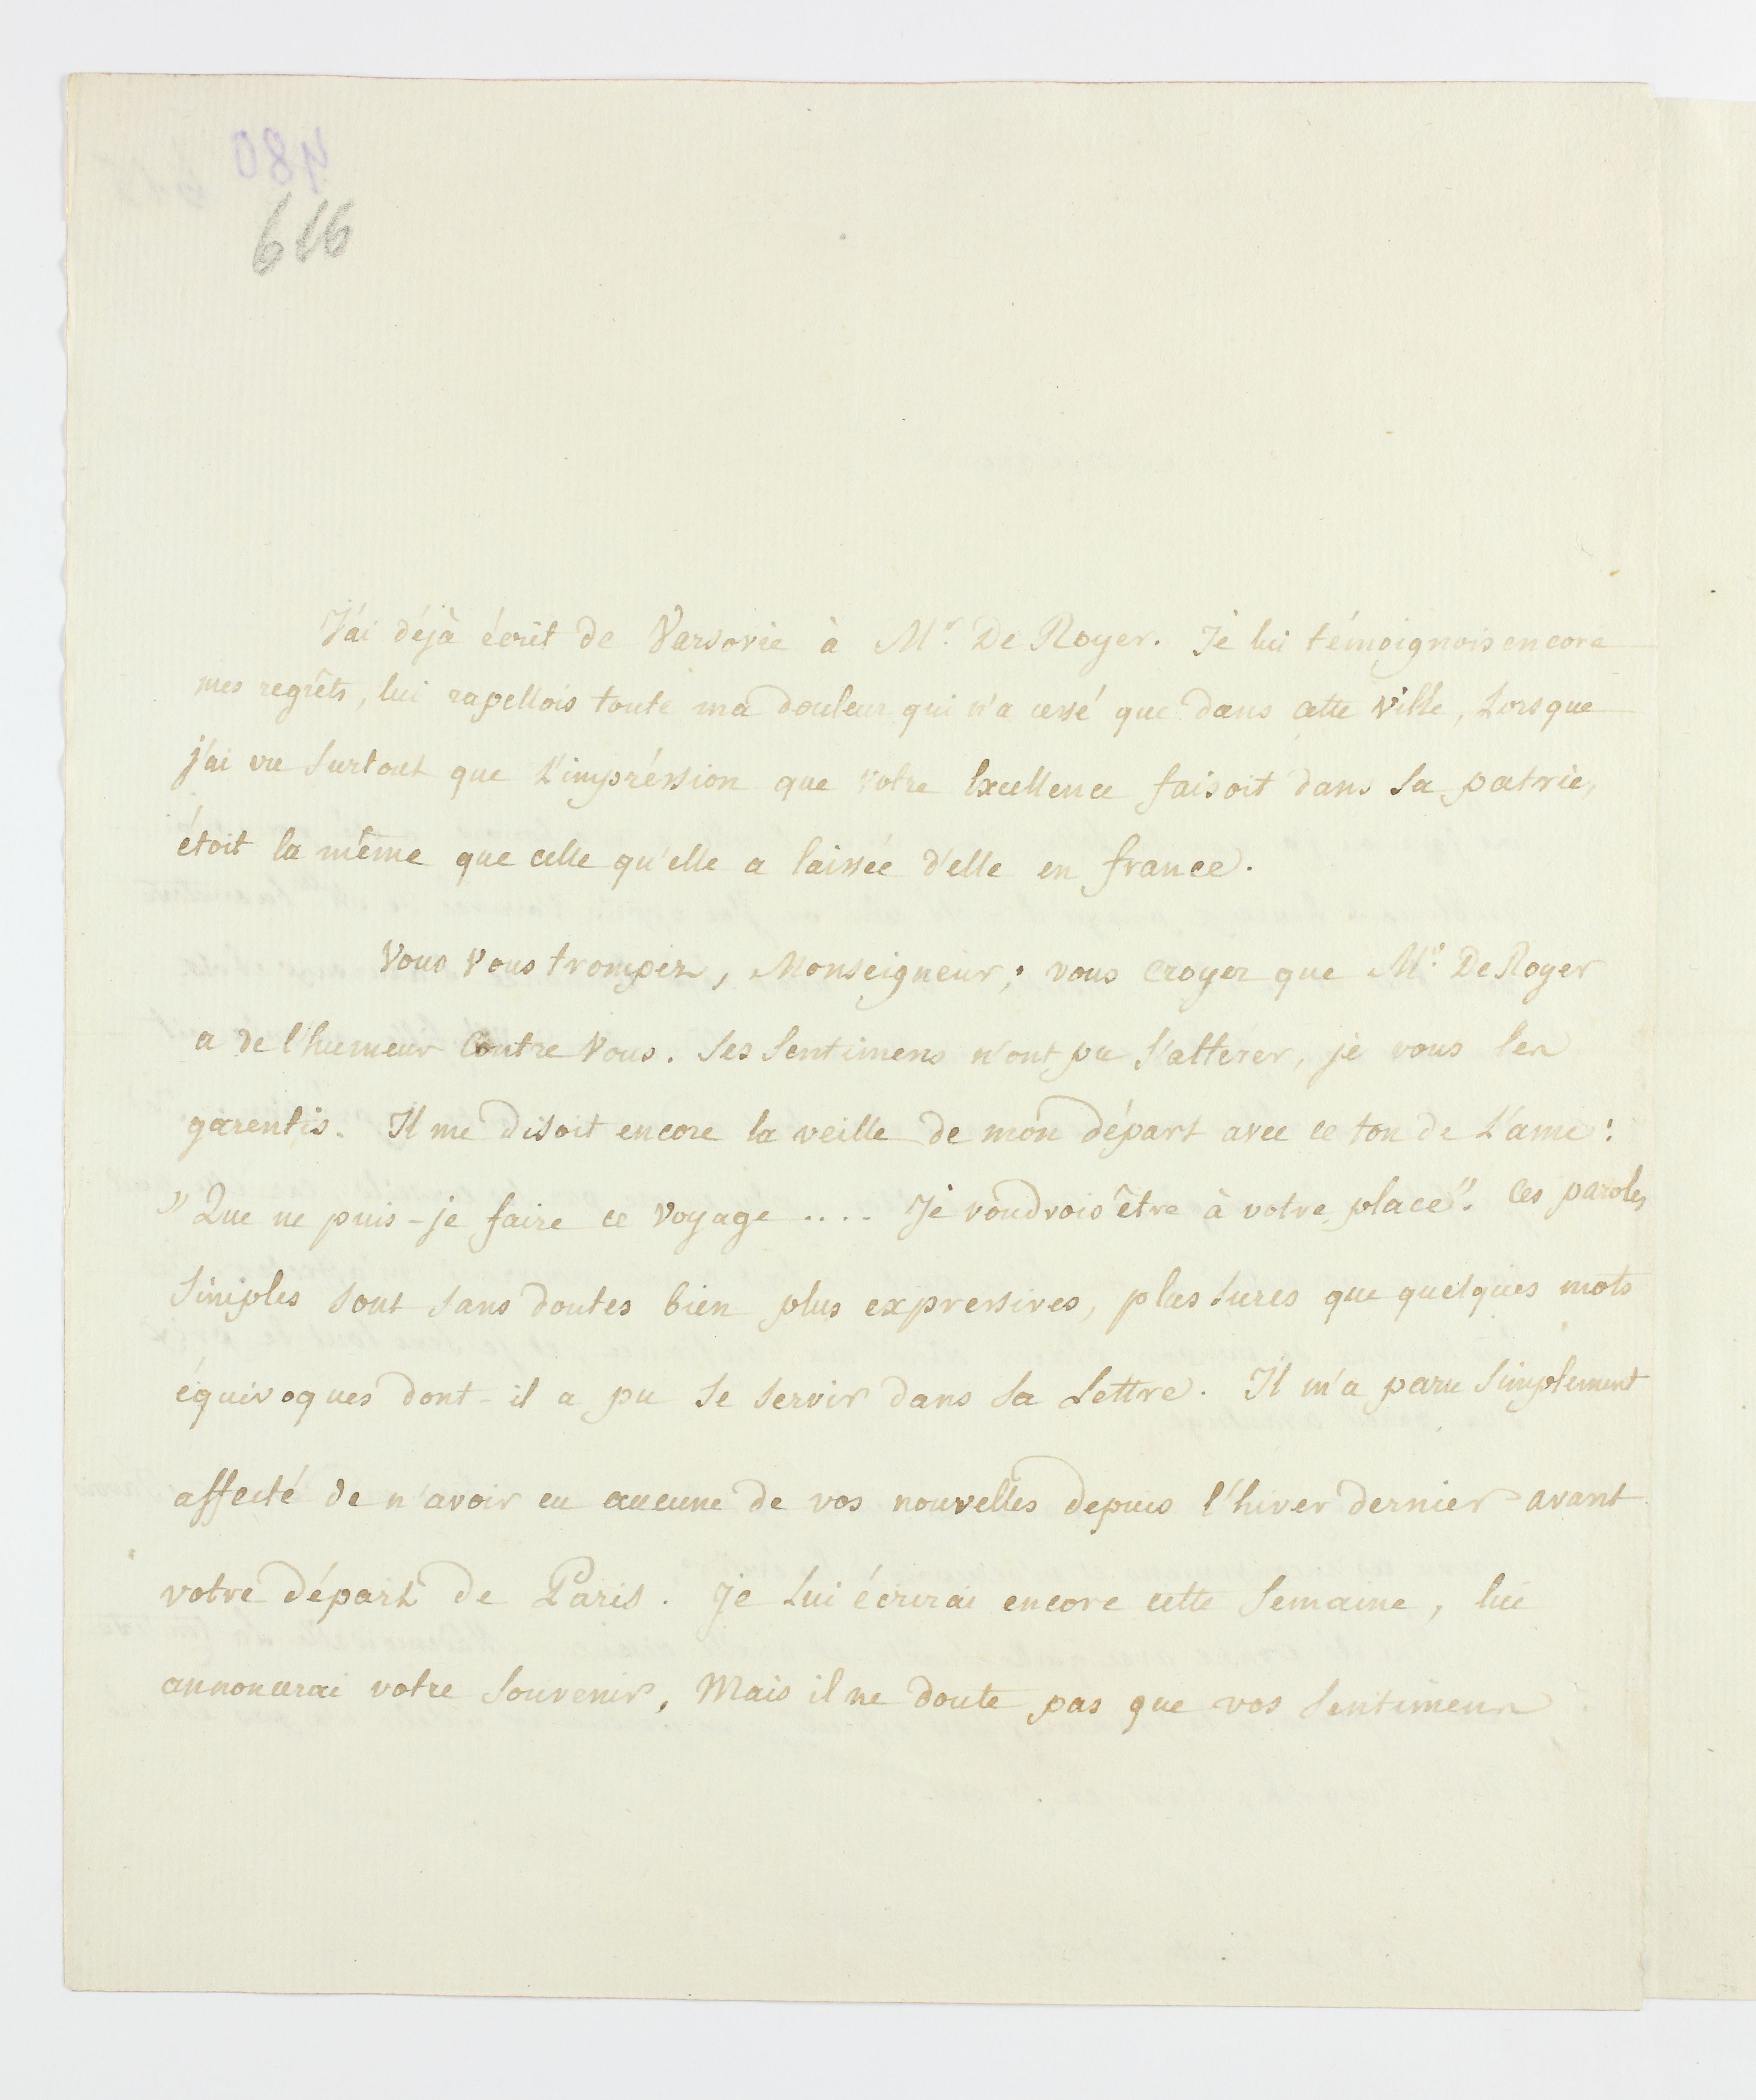 480
616
J'ai déjà écrit de Varsovie à Mr. De Royer. Je lui témoignois encore
mes regrêts, lui rapellois toute ma douleur qui n'a cessé que dans cette Ville, Lorsque
j'ai vu surtout que L'impréssion que votre Excellence faisoit dans Sa patrie,
étoit la même que celle qu'elle a laissée d'elle en france.
Vous Vous trompez, Monseigneur; vous croyez que Mr. De Royer
a de l'humeur Contre Vous. Ses Sentimens n'ont pu S'alterer, je vous les
garentis. Il me disoit encore la veille de mon départ avec ce ton de L'ame:
"Que ne puis-je faire ce Voyage .... Je voudrois être à votre place". Ces paroles
Simples sont sans doutes bien plus expressives, plus sures que quelques mots
équivoques dont-il a pu se servir dans sa Lettre. Il m'a paru Simplement
affecté de n'avoir eu aucune de vos nouvelles depuis l'hiver dernier avant
votre départ de Paris. Je Lui écrirai encore cette Semaine, lui
annoncerai votre Souvenir, Mais il ne doute pas que vos Sentimens